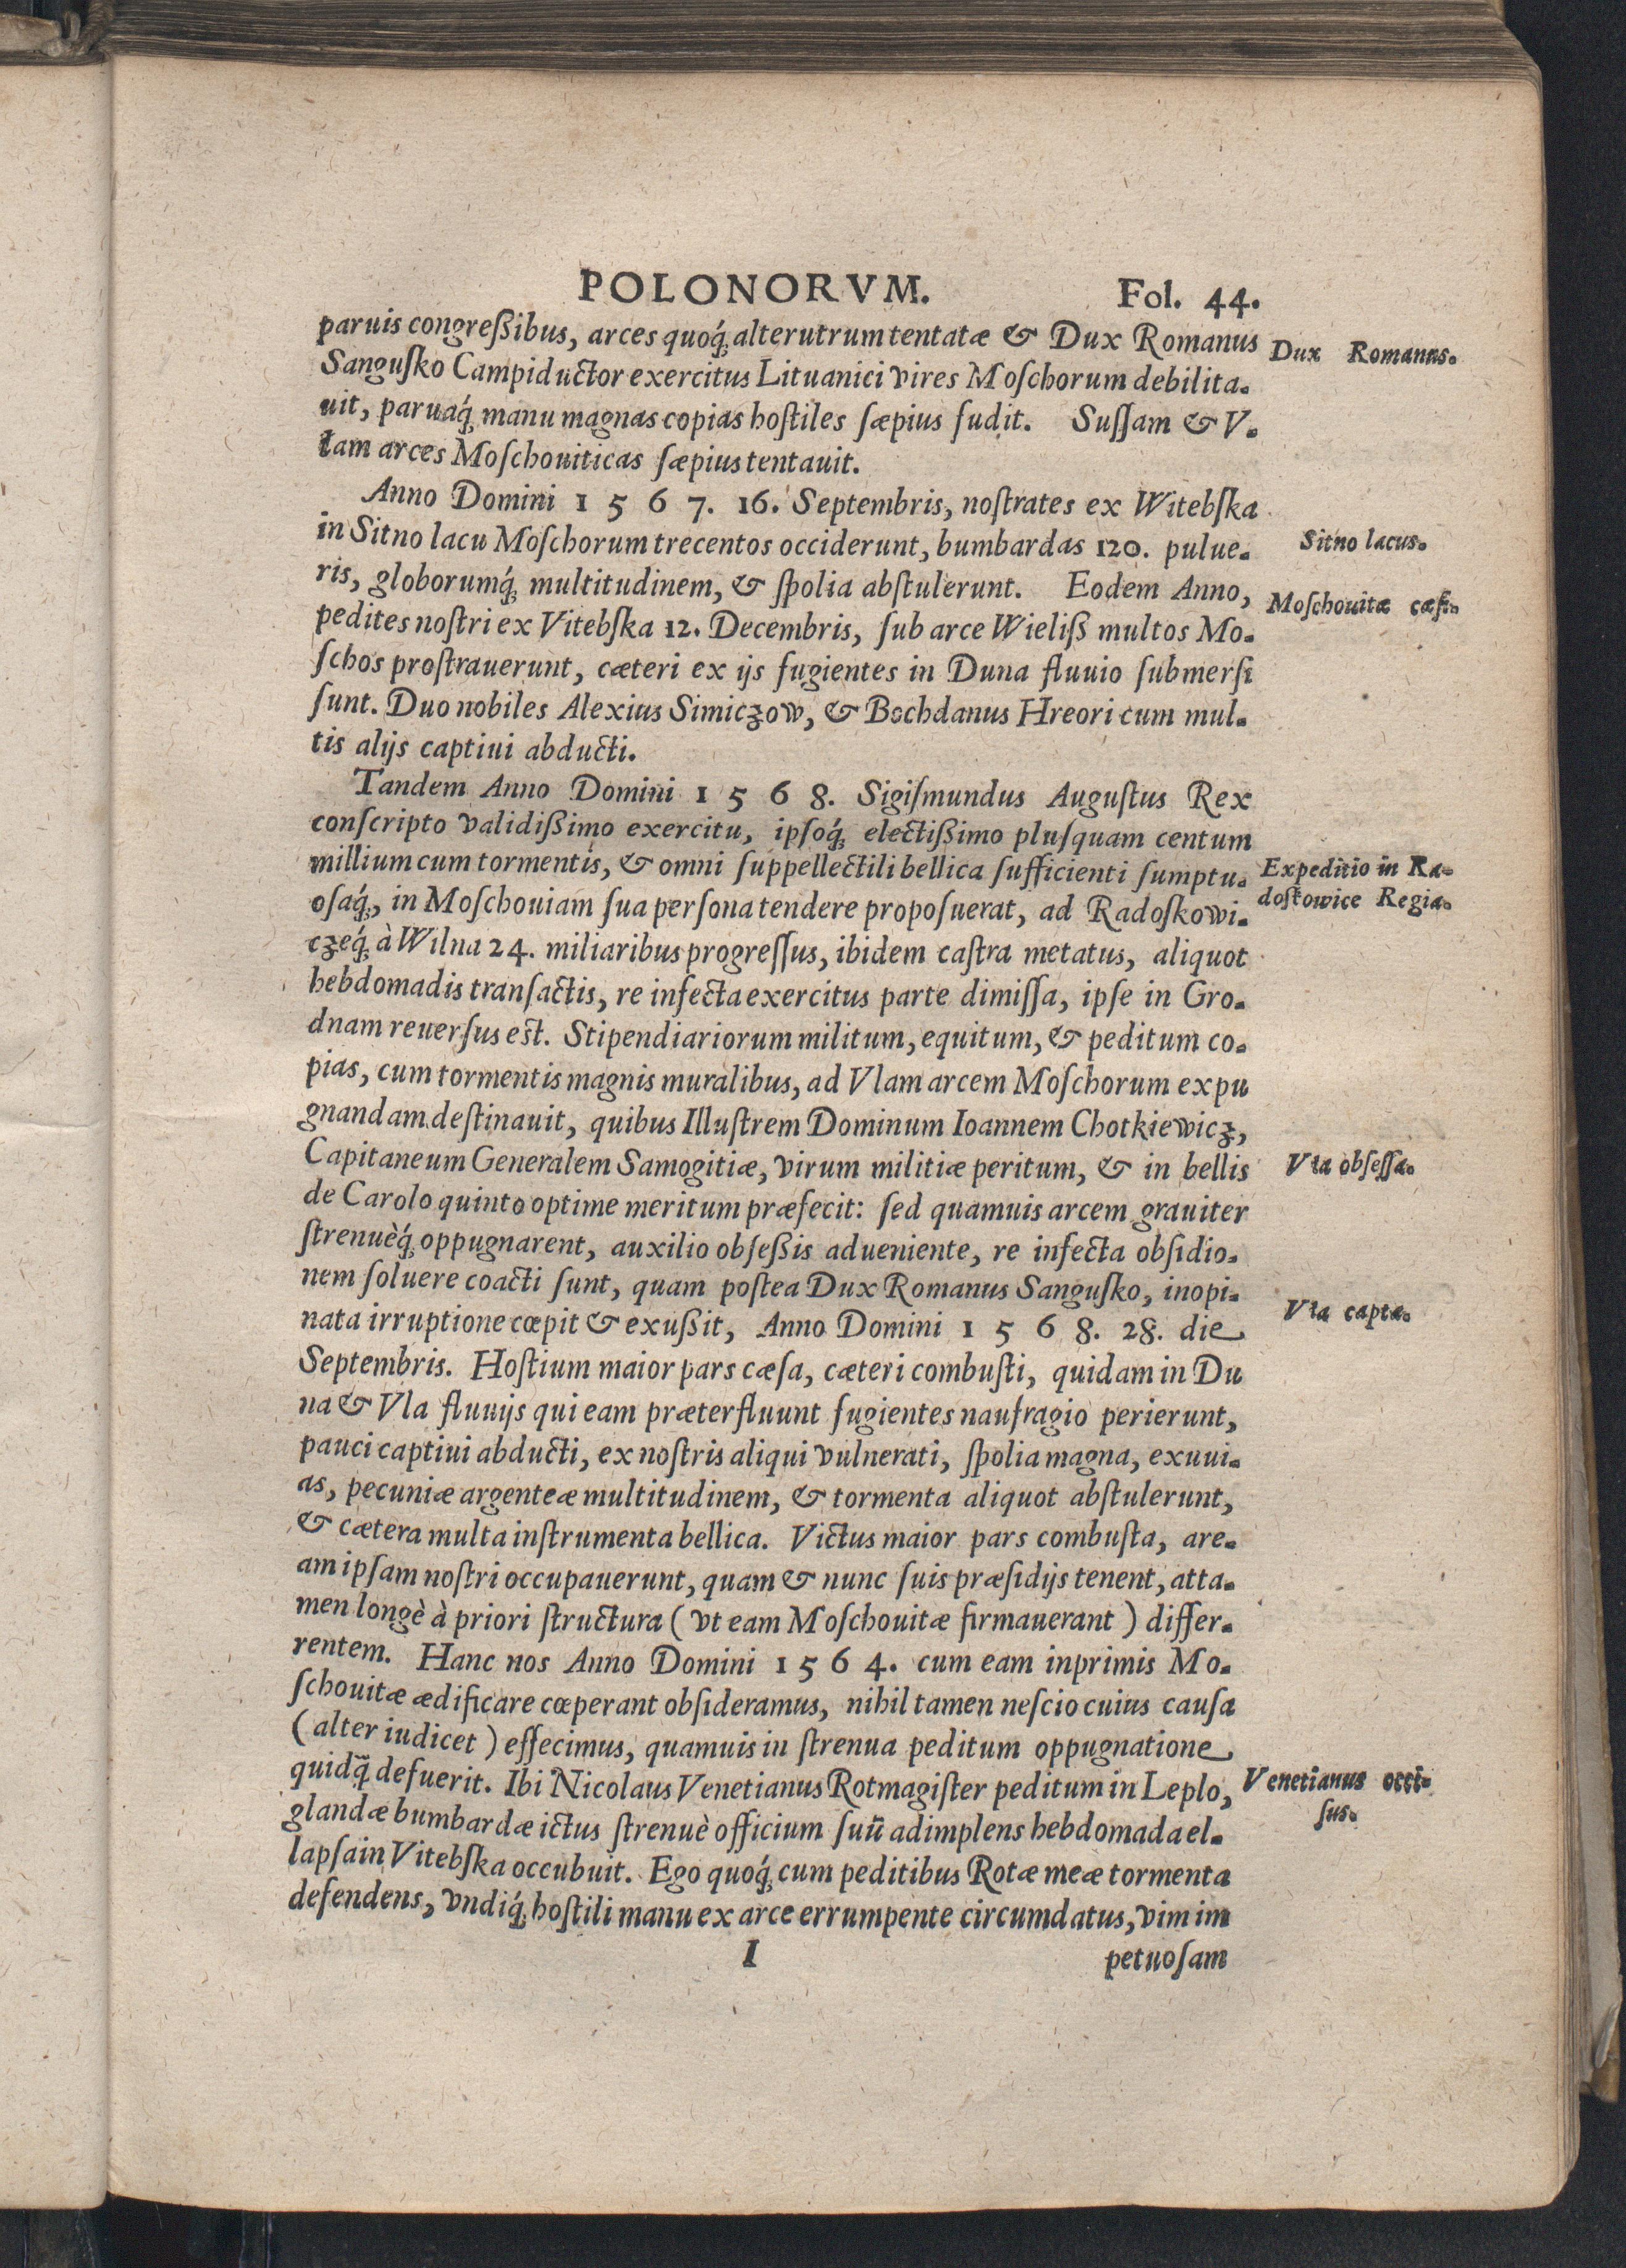 POLONORVM. Fol. 44.
paruis congreßibus, arces quoq́; alterutrum tentatæ & Dux Romanus
Dux Romanus.
Sanguſko Campiductor exercitus Lituanici vires Moſchorum debilita-
uit, paruaq́; manu magnas copias hoſtiles ſæpius fudit. Suſſam & V-
lam arces Moſchouiticas ſæpius tentauit.
Anno Domini 1 5 6 7. 16. Septembris, noſtrates ex Witebſka
in Sitno lacu Moſchorum trecentos occiderunt, bumbardas 120. pulue-
Sitno lacus.
ris, globorumq́; multitudinem, & ſpolia abſtulerunt. Eodem Anno,
Moſchouitæ cæſi.
pedites noſtri ex Vitebſka 12. Decembris, ſub arce Wieliß multos Mo-
ſchos proſtrauerunt, cæteri ex ijs fugientes in Duna fluuio ſubmerſi
ſunt. Duo nobiles Alexius Simiczow, & Bochdanus Hreori cum mul-
tis alijs captiui abducti.
Tandem Anno Domini 1 5 6 8. Sigiſmundus Auguſtus Rex
conſcripto validißimo exercitu, ipſoq́; electißimo pluſquam centum
millium cum tormentis, & omni ſuppellectili bellica ſufficienti ſumptu-
Expeditio in Ra-
oſaq́;, in Moſchouiam ſua perſona tendere propoſuerat, ad Radoſkowi-
doſkowice Regia.
czeq́; à Wilna 24. miliaribus progreſſus, ibidem caſtra metatus, aliquot
hebdomadis tranſactis, re infecta exercitus parte dimiſſa, ipſe in Gro-
dnam reuerſus eſt. Stipendiariorum militum, equitum, & peditum co-
pias, cum tormentis magnis muralibus, ad Vlam arcem Moſchorum expu
gnandam deſtinauit, quibus Illuſtrem Dominum Ioannem Chotkiewicz,
Capitaneum Generalem Samogitiæ, virum militiæ peritum, & in bellis
Vla obſeſſa.
de Carolo quinto optime meritum præfecit: ſed quamuis arcem grauiter
ſtrenuèq́; oppugnarent, auxilio obſeßis adueniente, re infecta obſidio-
nem ſoluere coacti ſunt, quam poſtea Dux Romanus Sanguſko, inopi-
nata irruptione cœpit & exußit, Anno Domini 1 5 6 8. 28. die
Vla capta.
Septembris. Hoſtium maior pars cæſa, cæteri combuſti, quidam in Du
na & Vla fluuijs qui eam præterfluunt fugientes naufragio perierunt,
pauci captiui abducti, ex noſtris aliqui vulnerati, ſpolia magna, exuui-
as, pecuniæ argenteæ multitudinem, & tormenta aliquot abſtulerunt,
& cætera multa inſtrumenta bellica. Victus maior pars combuſta, are-
am ipſam noſtri occupauerunt, quam & nunc ſuis præſidijs tenent, atta-
men longè à priori ſtructura ( vt eam Moſchouitæ firmauerant ) differ-
rentem. Hanc nos Anno Domini 1 5 6 4. cum eam inprimis Mo-
ſchouitæ ædificare cœperant obſideramus, nihil tamen neſcio cuius cauſa
( alter iudicet ) effecimus, quamuis in ſtrenua peditum oppugnatione
quidq̃ defuerit. Ibi Nicolaus Venetianus Rotmagiſter peditum in Leplo,
Venetianus occi-
ſus.
glandæ bumbardæ ictus ſtrenuè officium ſuũ adimplens hebdomada el-
lapſa in Vitebſka occubuit. Ego quoq́; cum peditibus Rotæ meæ tormenta
defendens, vndiq́; hoſtili manu ex arce errumpente circumdatus, vim im
I petuoſam